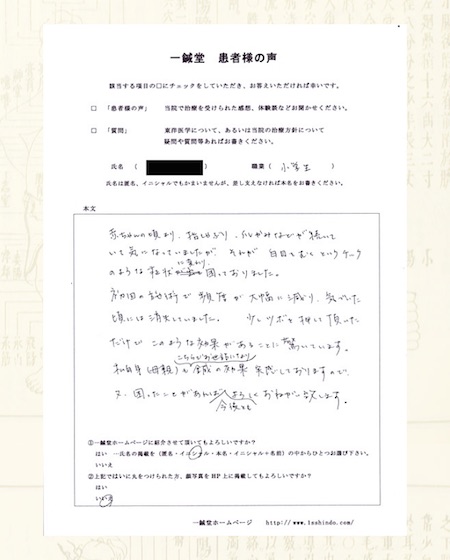 一鍼堂　患者様の声
該当する項目の□にチェックをしていただき、お答えいただければ幸いです。
□ 「患者様の声」 当院で治療を受けられた感想、体験談などお聞かせください。
□ 「質問」 東洋医学について、あるいは当院の治療方針について
疑問や質問等あればお書きください。
氏名 （ ） 職業（ 小学生 ）
氏名は匿名、イニシャルでもかまいませんが、差し支えなければ本名をお書きください。
本文
赤ちゃんの頃より、指しゃぶり、爪かみなどが続いて
いて気になっていましたが、それが 白目をむく というチック
のような症状に変わり 困っておりました。
初回の施術で 頻度が 大幅に減り、気づいた
頃には消失していました。 少しツボを押して頂いた
だけで このような効果があることに 驚いています。
私自身(母親)も こちらでお世話になり 鍼の効果 実感しておりますので、
又、困ったことがあれば 今後とも よろしく お願い致します。
①一鍼堂ホームページに紹介させて頂いてもよろしいですか？
はい …氏名の掲載を（匿名・イニシャル・本名・イニシャル＋名前）の中からひとつお選び下さい。
いいえ
②上記ではいに丸をつけられた方、顔写真をHP上に掲載してもよろしいですか？
はい
いいえ
一鍼堂ホームページ http://www.1sshindo.com/